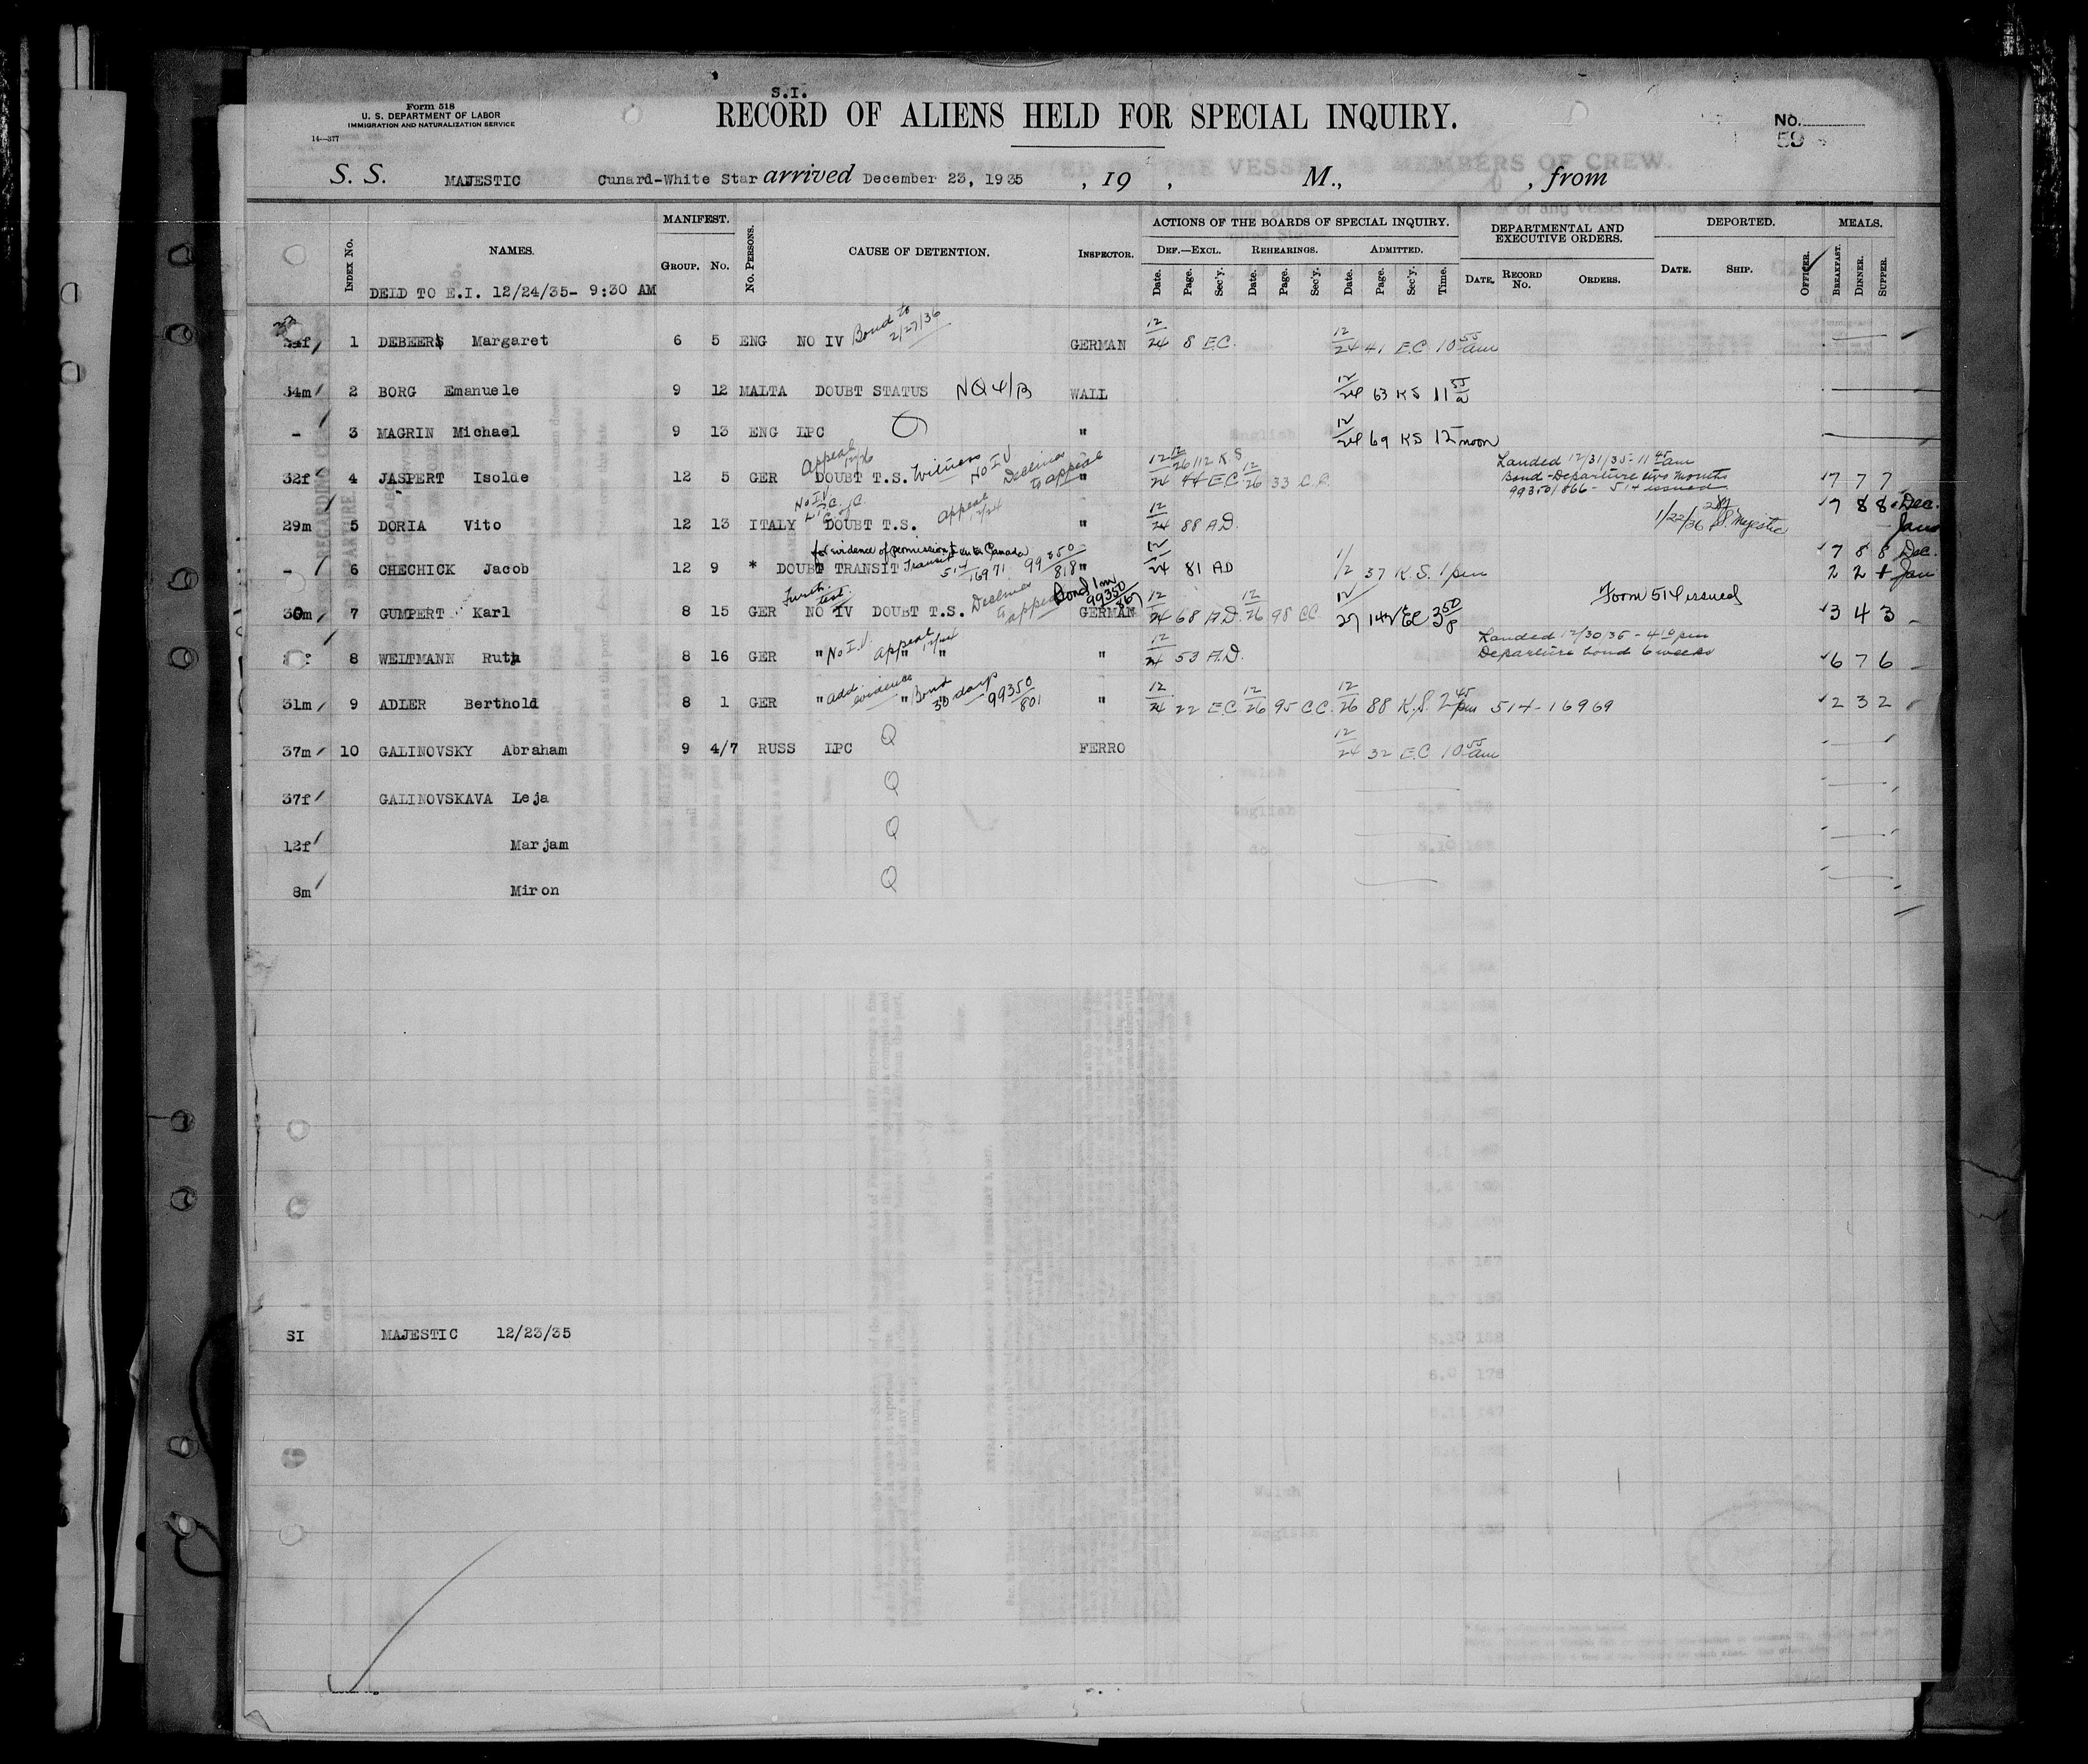 S.I.
Form 518
U. S. DEPARTMENT OF LABOR
IMMIGRATION AND NATURALIZATION SERVICE
14—377
RECORD OF ALIENS HELD FOR SPECIAL INQUIRY.
No.
59
S. S. MAJESTIC Cunard-White Star arrived December 23, 1935 , 19 , M., , from
Index No. NAMES. MANIFEST. Group. No. No. Persons. CAUSE OF DETENTION. Inspector. ACTIONS OF THE BOARDS OF SPECIAL INQUIRY. DEPARTMENTAL AND EXECUTIVE ORDERS. DEPORTED. MEALS.
Def.—Excl. Rehearings. Admitted.
Date. Page. Sec'y. Date. Page. Sec'y. Date. Page. Sec'y. Time. Date. Record No. Orders. Date. Ship. Officer. Breakfast. Dinner. Supper.
DELD TO E.I. 12/24/35- 9:30 AM
1 DEBEERS Margaret 6 5 ENG NO IV Bond to 2/27/36 GERMAN 12/24 8 E.C. 12/24 41 E.C 10 55 am
34m 2 BORG Emanuele 9 12 MALTA DOUBT STATUS NQ 4/B WALL 12/24 63 KS 11 55 a
- 3 MAGRIN Michael 9 13 ENG LPC " 12/24 69 KS 12 noon
Appeal 12/26 12/26 112 K.S Landed 12/31/35-11 45 am
32f 4 JASPERT Isolde 12 5 GER DOUBT T.S. Witness No I.V Declines to appeal " 12/24 44 E.C. 12/26 33 Bond-Departure two months 7 7 7
99350/866- 514 issued
No IV L.P.C.
29m 5 DORIA Vito 12 13 ITALY DOUBT T.S. appeal 12/24 " 12/24 88 A.D. 1/22/36 Majestic 7 8 8 Dec.
Jan
for evidence of permission to enter Canada
- 6 CHECHICK Jacob 12 9 * DOUBT TRANSIT Transit 514/16971 99350/818 " 12/24 81 AD 1/2 37 K.S. 1 pm 7 8 8 Dec.
2 2 + Jan
Further test. Declines to appeal Bond 1m 99350/867
30m 7 GUMPERT Karl 8 15 GER NO IV DOUBT T.S. GERMAN 12/24 68 A.D. 12/26 98 CC 12/27 142 EC 3 50 p Form 514 issued 3 4 3
Landed 12/30/35 - 4 10 pm
8 WEITMANN Ruth 8 16 GER " No I.V. appeal 12/24 " " " 12/24 53 A.D. Departure bond 6 weeks 6 7 6
31m 9 ADLER Berthold 8 1 GER " add. evidence " Bond 30 days 99350/801 " 12/24 22 E.C. 12/26 95 CC. 12/26 88 K.S. 2 45 pm 514-16969 2 3 2
37m 10 GALINOVSKY Abraham 9 4/7 RUSS LPC FERRO 12/24 32 E.C 10 55 am
37f GALINOVSKAVA Leja
12f Marjam
8m Miron
SI MAJESTIC 12/23/35